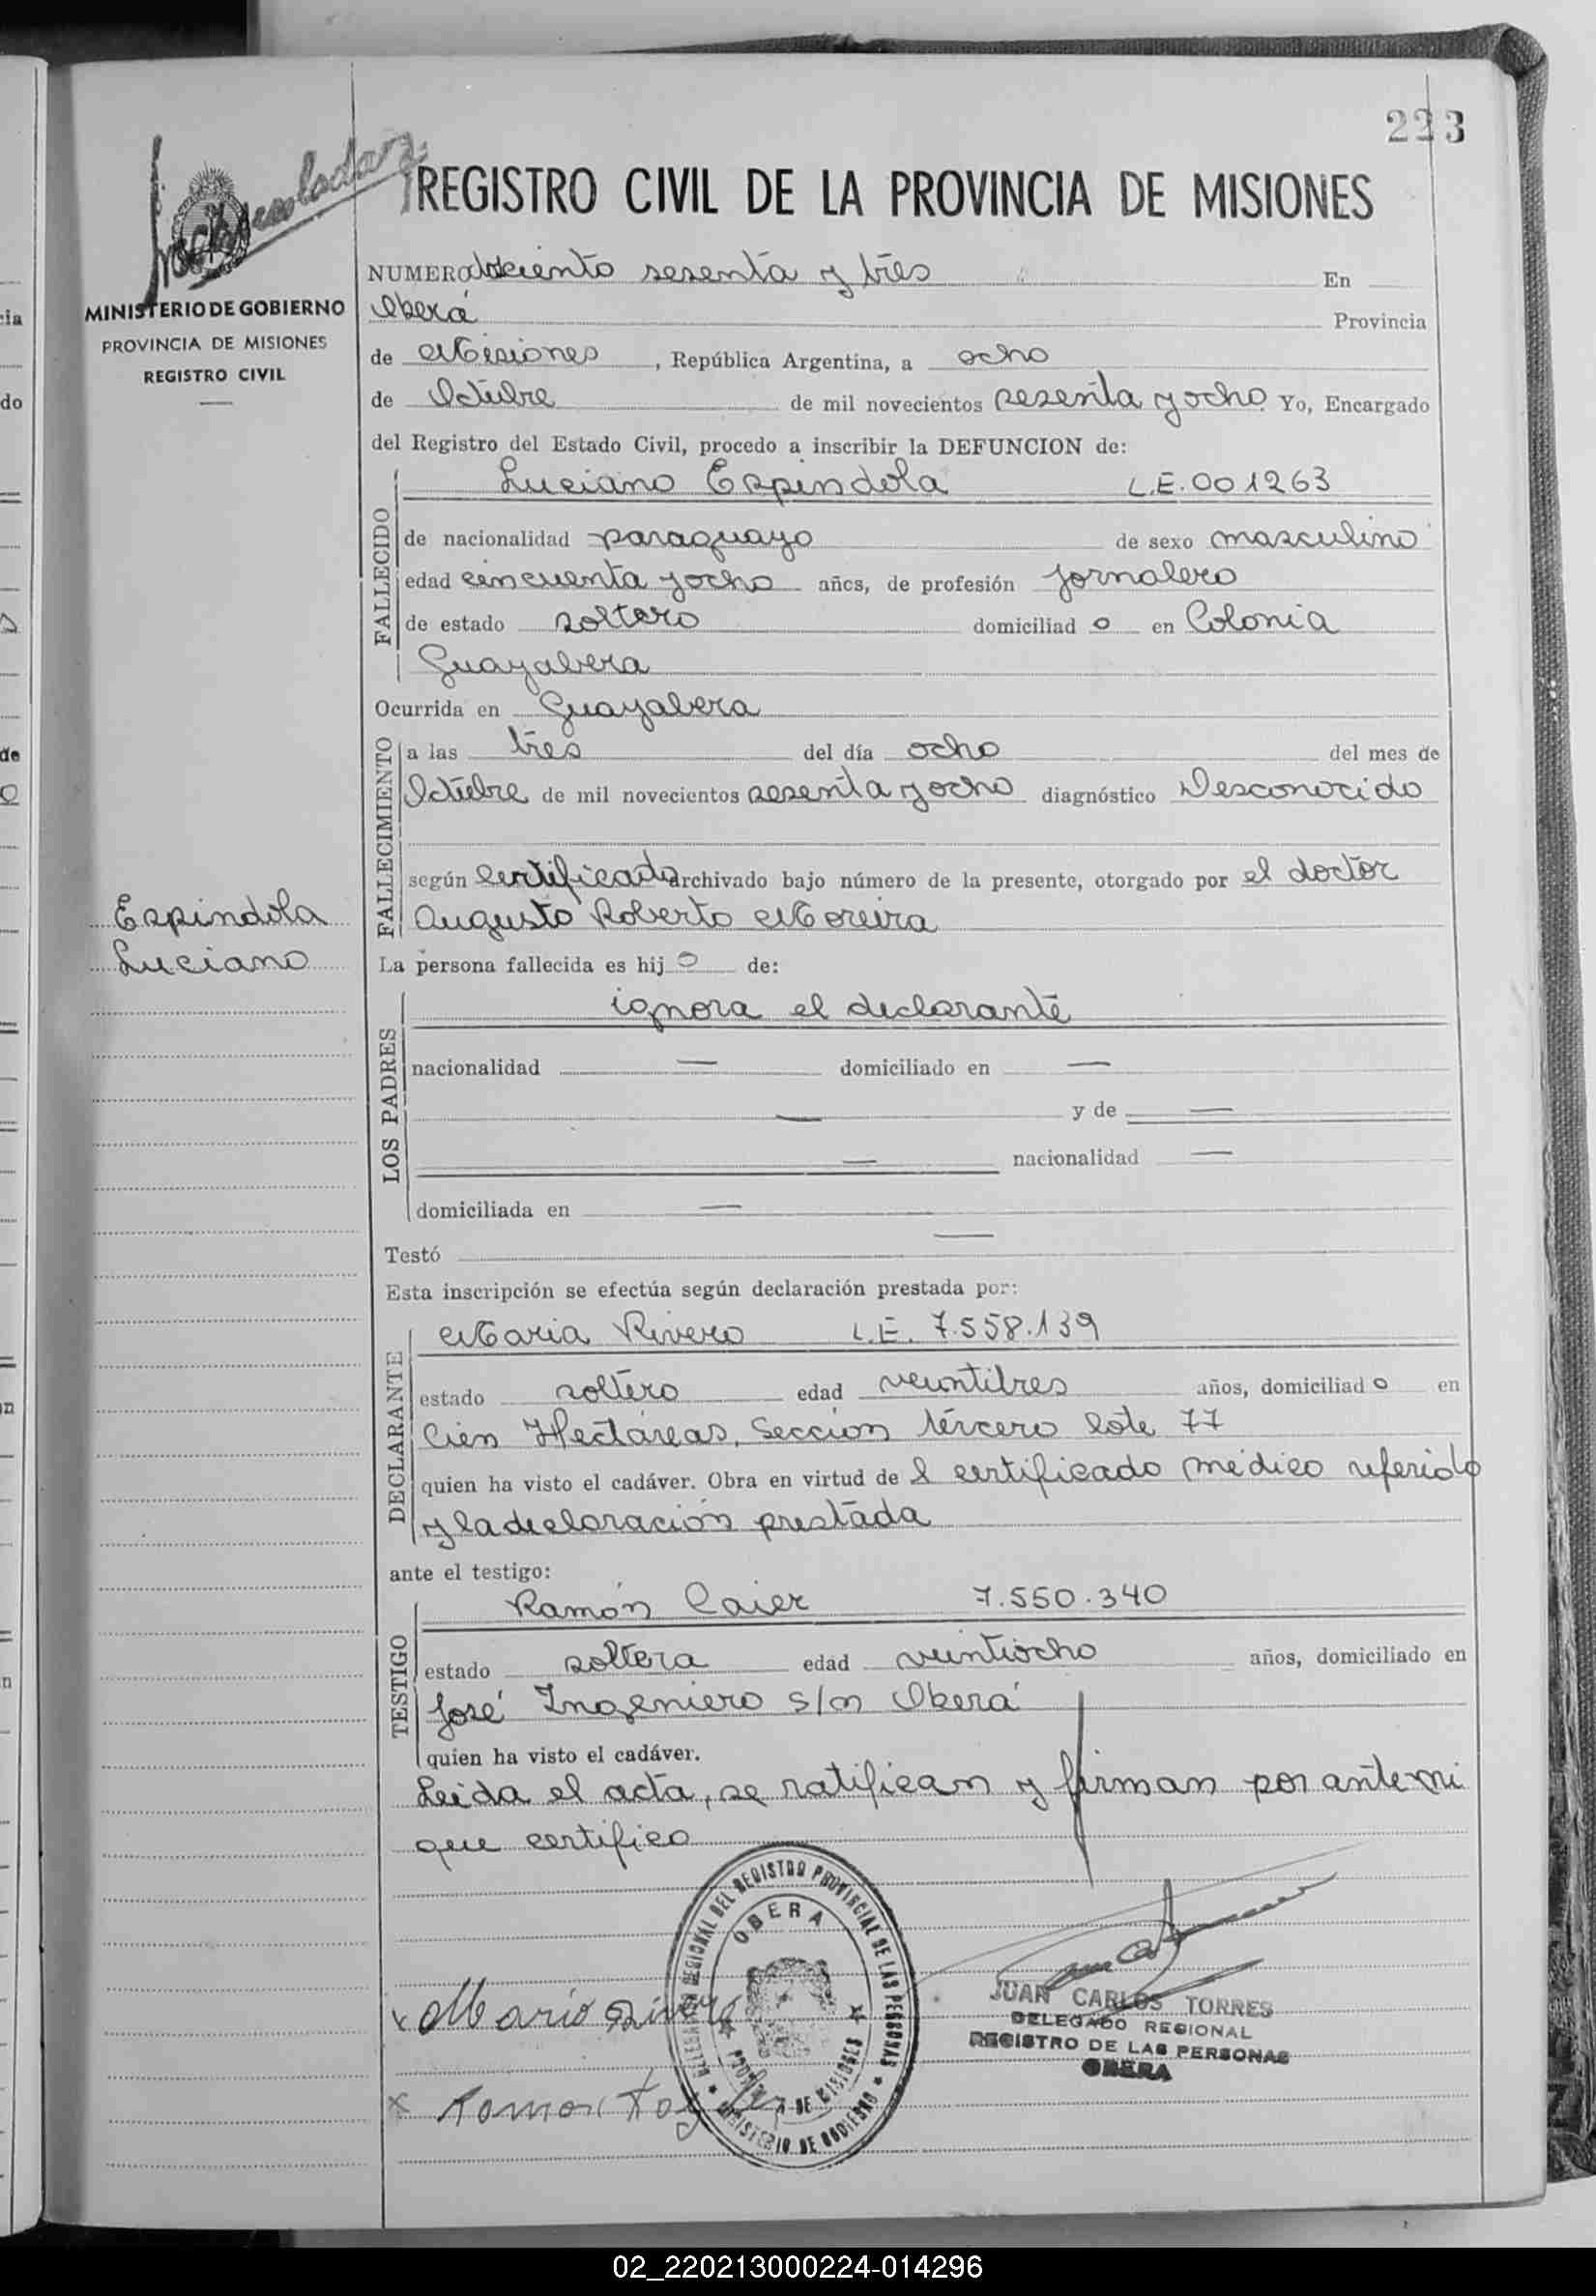 223
REGISTRO CIVIL DE LA PROVINCIA DE MISIONES
MINISTERIO DE GOBIERNO
PROVINCIA DE MISIONES
REGISTRO CIVIL
NUMERO dosciento sesenta y tres En
Oberá Provincia
de Misiones, República Argentina, a ocho
de Octubre de mil novecientos sesenta y ocho. Yo, Encargado
del Registro del Estado Civil, procedo a inscribir la DEFUNCION de:
FALLECIDO
Luciano Espindola L.E. 001263
de nacionalidad paraguayo de sexo masculino
edad cincuenta y ocho años, de profesión jornalero
de estado soltero domiciliad o en Colonia
Guayabera
Ocurrida en Guayabera
FALLECIMIENTO
a las tres del día ocho del mes de
Octubre de mil novecientos sesenta y ocho diagnóstico Desconocido
según Certificado archivado bajo número de la presente, otorgado por el doctor
Augusto Roberto Moreira
Espindola
Luciano
La persona fallecida es hij o de:
LOS PADRES
ignora el declarante
nacionalidad — domiciliado en —
— y de —
— nacionalidad —
domiciliada en —
Testó —
Esta inscripción se efectúa según declaración prestada por:
DECLARANTE
Maria Rivero L.E. 7.558.139
estado soltero edad veintitres años, domiciliad o en
Cien Hectáreas, Sección tércero lote 77
quien ha visto el cadáver. Obra en virtud de l certificado médico referido
y la declaración prestada
ante el testigo:
TESTIGO
Ramón Caier 7.550.340
estado soltera edad veintiocho años, domiciliado en
José Ingeniero s/n Oberá
quien ha visto el cadáver.
Leida el acta, se ratifican y firman por ante mi
que certifico
DELEGACION REGIONAL DEL REGISTRO PROVINCIAL DE LAS PERSONAS
OBERA
PROVINCIA DE MISIONES
MINISTERIO DE GOBIERNO
x Mario Rivero
x Ramon
JUAN CARLOS TORRES
DELEGADO REGIONAL
REGISTRO DE LAS PERSONAS
OBERA
02_220213000224-014296